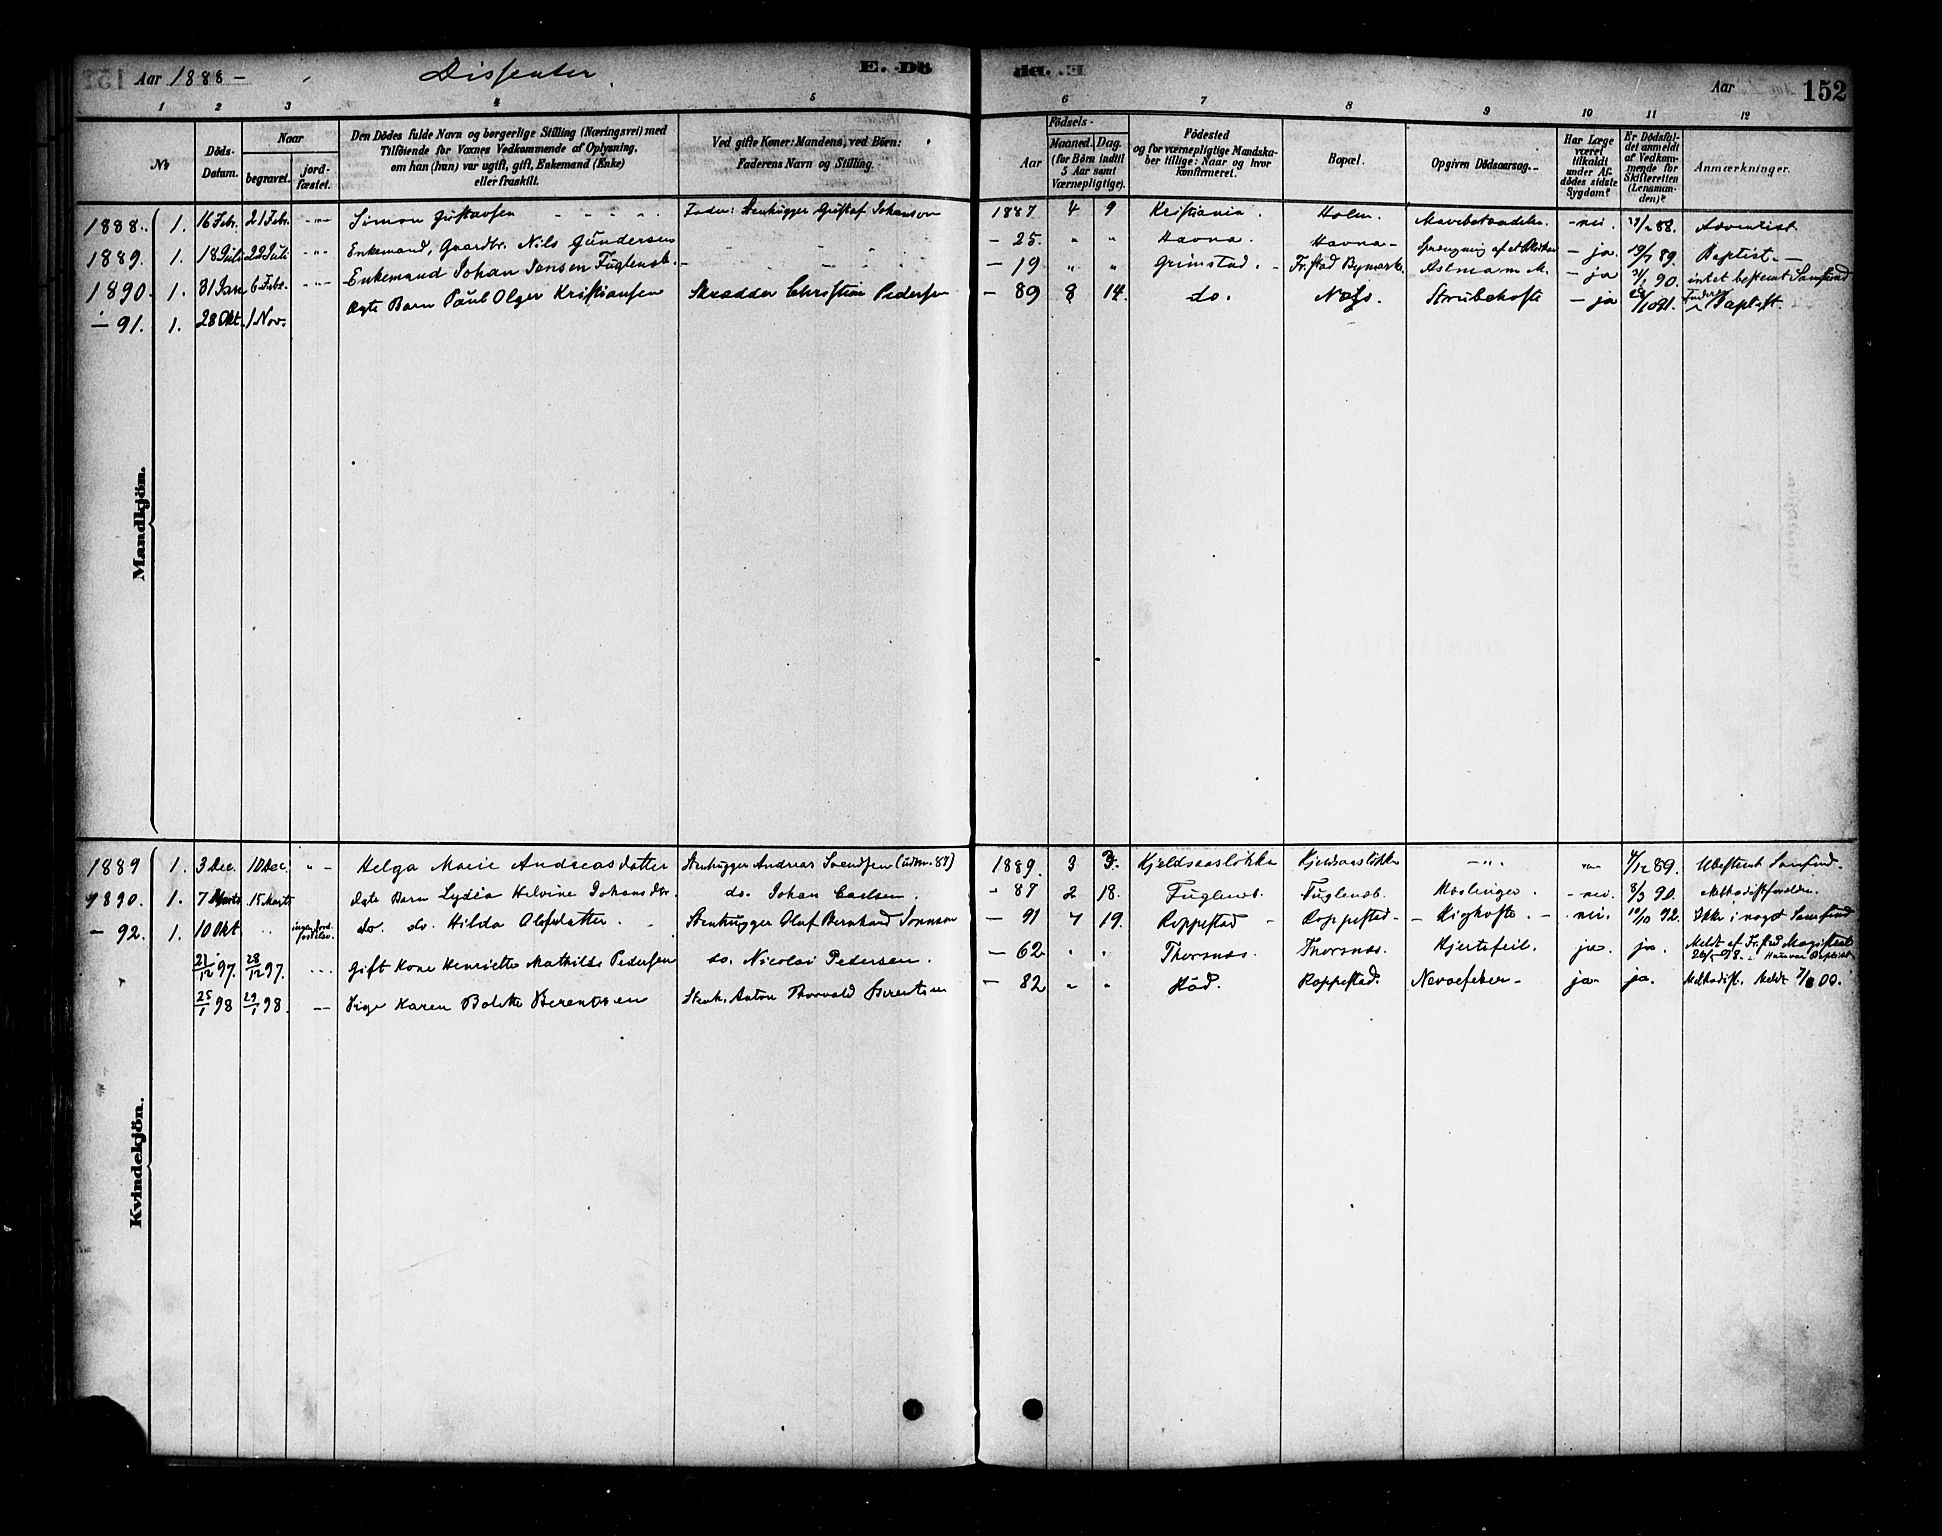 Aar 1888 – Dissenter E. Dö
de. E Aar 152
1 2 3 4 5 6 7 8 9 10 11 12
No
Döds-Datum.
Naar
begravet.
jord-fæstet.
Den Dödes fulde Navn og borgerlige Stilling (Næringsvei) med
Tilföiende for Voxnes Vedkommende af Oplysning,
om han (hun) var ugift, gift, Enkemand (Enke)
eller fraskilt.
Ved gifte Koner: Mandens, ved Börn:
Faderens Navn og Stilling.
Födsels-
Aar
Maaned. Dag.
(for Börn indtil
5 Aar samt
Værnepligtige).
Födested
og for værnepligtige Mandska-
ber tillige: Naar og hvor
konfirmeret.
Bopæl.
Opgiven Dödsaarsag.
Har Læge
været
tilkaldt
under Af-
dödes sidste
Sygdom?
Er Dödsfal-
det anmeldt
af Vedkom-
mende for
Skifteretten
(Lensman-
den)?
Anmærkninger.
Mandkjön.
1888. 1. 16 Febr. 21 Febr. -"- Simon Gustavsen Fader: Stenhugger Gustaf Johanson 1887 4 9 Kristiania. Holm. - nei. 88. Adventist
1889. 1. 18 Juli 22 Juli -"- Enkemand, Gaardbr. Nils Gundersen – 25. " " Havna. Havna – – ja. 19/7 89. Baptist. –
1890. 1. 31 Jan 6 Febr. -"- Enkemand Johan Jensen Fuglensb. – 19 " " Grimstad. – Fr.stad Bymark. – ja 90. intet bestemt Samfund
– 91. 1. 28 Okt. 1 Nov. Ægte Barn Paul Olger Kristiansen Skrædder Christian Pedersen – 89 8 14. do. Næs. Strubehoste – ja 91. Baptist.
Kvindekjön.
1889 1. 3 Dec. 10 Dec. " – Helga Marie Andreasdatter Stenhugger Andreas Svendsen (udm. 87) 1889. 3 3. Kjeldsaasløkka Kjeldsaasløkka – " – 4/12 89. Ubestemt Samfund.
1890. 1. 7 Marts 15 Marts Ægte Barn Lydia Helvine Johansdtr. do. Johan Carlsen. – 87 2 18. Fuglensb. Fuglensb. Mæslinger. – nei. 8/3 90. Methodistforældre.
– 92. 1. 10 Okt " ingen jord-fæstelse. do. do. Hilda Olafsdatter. Stenhugger Oluf Bernhard Svenson – 91 7 19. Roppestad – Roppestad – – Kighoste. – – nei. 10/10 92. Ikke i noget Samfund
21/12 97. 28/12 97. " Gift Kone Henriette Mathilde Pedersen do. Nicolai Pedersen. – 62 " " Thorsnæs. Thorsnæs. Hjertefeil. ja. ja. Meldt af Fr.stad Magistrat 98.
25/1 98 29/1 98. – Pige Karen Bolette Berentsen Stenh. Anton Thorvald Berentsen – 82 " " Roppestad. Nervefeber – ja ja. Methodist. Meldt 00.